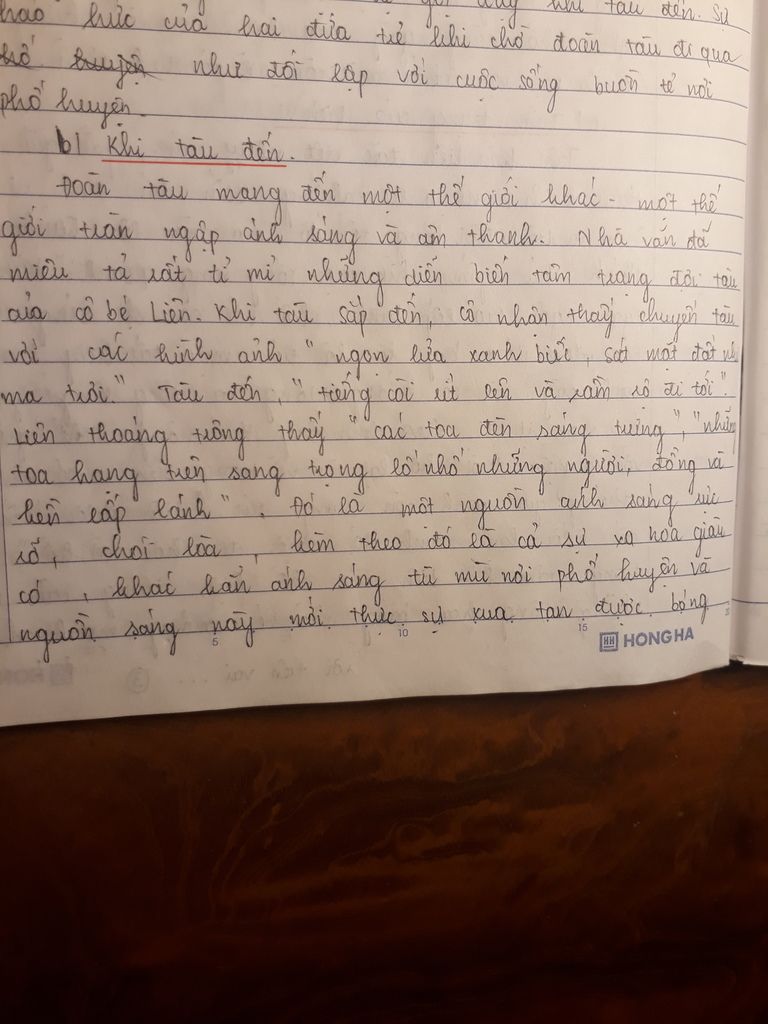 khi tàu đến. Sự
háo hức của hai đứa trẻ khi chờ đoàn tàu đi qua
như đối lập với cuộc sống buồn tẻ nơi
phố huyện.
b) Khi tàu đến.
Đoàn tàu mang đến một thế giới khác - một thế
giới tràn ngập ánh sáng và âm thanh. Nhà văn đã
miêu tả rất tỉ mỉ những diễn biến tâm trạng đợi tàu
của cô bé Liên. Khi tàu sắp đến, cô nhận thấy chuyến tàu
với các hình ảnh "ngọn lửa xanh biếc, sát mặt đất như
ma trơi." Tàu đến, "tiếng còi rít lên và rầm rộ đi tới".
Liên thoáng trông thấy "các toa đèn sáng trưng", "những
toa hạng trên sang trọng lố nhố những người, đồng và
kền lấp lánh". Đó là một nguồn ánh sáng rực
rỡ, chói lòa, kèm theo đó là cả sự xa hoa giàu
có, khác hẳn ánh sáng tù mù nơi phố huyện và
nguồn sáng này mới thực sự xua tan được bóng
5 10 15
HH HONG HA